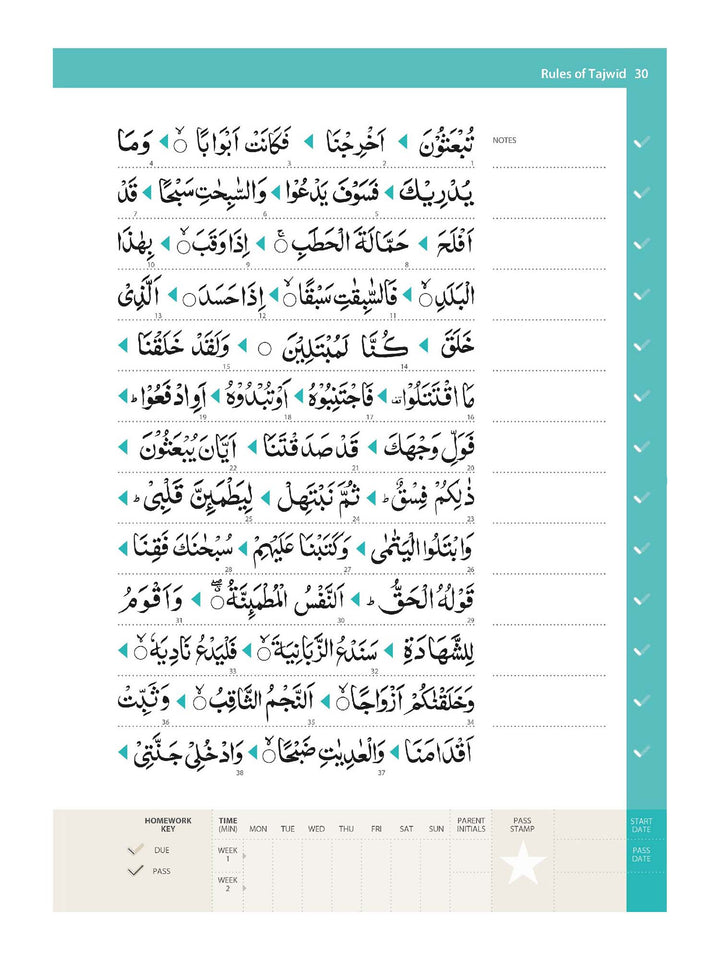 Rules of Tajwid 30
NOTES
تُبْعَثُوْنَ ◀ اَخْرِجْنَا ◀ فَكَانَتْ اَبْوَابًا ۙ○ ◀ وَمَا
1 2 3 4
يُدْرِيْكَ ◀ فَسَوْفَ يَدْعُوْا ◀ وَالسّٰبِحٰتِ سَبْحًا ◀ قَدْ
5 6 7
اَفْلَحَ ◀ حَمَّالَةَ الْحَطَبِ ۚ○ ◀ اِذَا وَقَبَ ۙ○ ◀ بِهٰذَا
8 9 10
الْبَلَدِ ۙ○ ◀ فَالسّٰبِقٰتِ سَبْقًا ۙ○ ◀ اِذَا حَسَدَ ○ ◀ الَّذِىْ
11 12 13
خَلَقَ ◀ كُنَّا لَمُبْتَلِيْنَ ○ ◀ وَلَقَدْ خَلَقْنَا ◀
14 15
مَا اقْتَتَلُوْا ◀ فَاجْتَنِبُوْهُ ◀ اَوْتُبْدُوْهُ ◀ اَوِادْفَعُوْا ؕ ◀
16 17 18 19
فَوَلِّ وَجْهَكَ ◀ قَدْ صَدَقْتَنَا ◀ اَيَّانَ يُبْعَثُوْنَ ◀
20 21 22
ذٰلِكُمْ فِسْقٌ ؕ ◀ ثُمَّ نَبْتَهِلْ ◀ لِيَطْمَئِنَّ قَلْبِىْ ؕ ◀
23 24 25
وَابْتَلُوا الْيَتٰمٰى ◀ وَكَتَبْنَا عَلَيْهِمْ ◀ سُبْحٰنَكَ فَقِنَا ◀
26 27 28
قَوْلُهُ الْحَقُّ ؕ ◀ اَلنَّفْسُ الْمُطْمَئِنَّةُ ۖ○ ◀ وَاَقْوَمُ
29 30 31
لِلشَّهَادَةِ ◀ سَنَدْعُ الزَّبَانِيَةَ ۙ○ ◀ فَلْيَدْعُ نَادِيَهٗ ۙ○ ◀
32 33
وَخَلَقْنٰكُمْ اَزْوَاجًا ۙ○ ◀ اَلنَّجْمُ الثَّاقِبُ ۙ○ ◀ وَثَبِّتْ
34 35 36
اَقْدَامَنَا ◀ وَالْعٰدِيٰتِ ضَبْحًا ۙ○ ◀ وَادْخُلِىْ جَنَّتِىْ ◀
37 38
HOMEWORK KEY
DUE
PASS
TIME (MIN) MON TUE WED THU FRI SAT SUN PARENT INITIALS PASS STAMP START DATE
WEEK 1
PASS DATE
WEEK 2